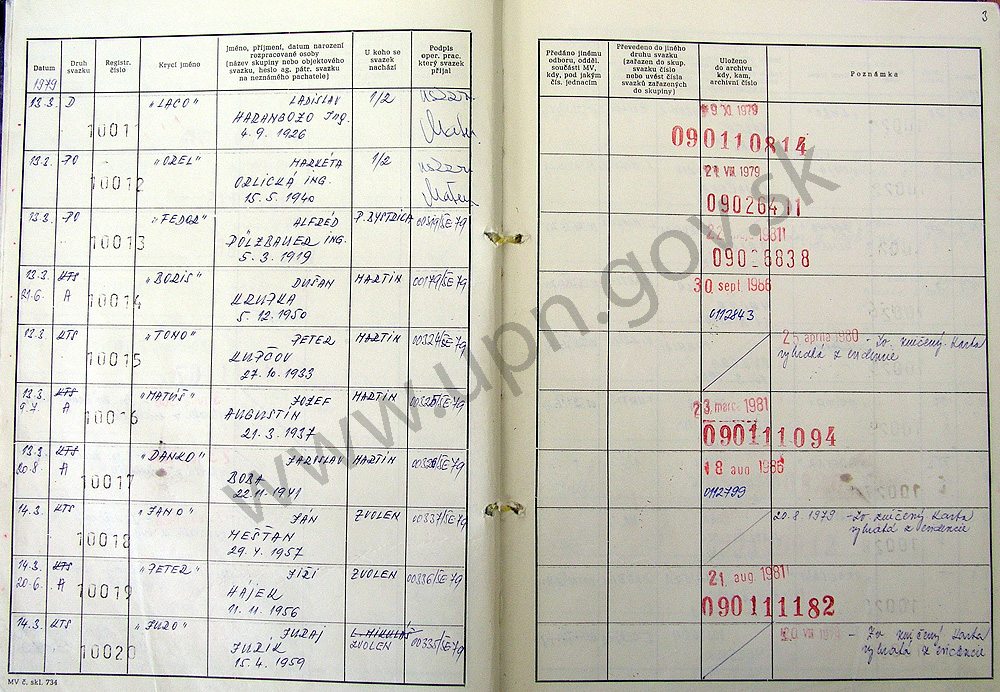 3
Datum
Druh svazku
Registr. číslo
Krycí jméno
Jméno, příjmení, datum narození rozpracované osoby (název skupiny nebo objektového svazku, heslo ag. pátr. svazku na neznámého pachatele)
U koho se svazek nachází
Podpis oper. prac. který svazek přijal
Předáno jinému odboru, odděl. součásti MV, kdy, pod jakým čís. jednacím
Převedeno do jiného druhu svazku (zařazen do skup. svazku číslo nebo uvést čísla svazků zařazených do skupiny)
Uloženo do archivu kdy, kam, archivní číslo
Poznámka
1979
13.3. D 10011 "LACO" LADISLAV 1/2
HARANGOZO Ing.
4. 9. 1926
9 XI. 1979
090110814
13.3. PO 10012 "OREL" MARKÉTA 1/2
ORLICKÁ ING.
15. 5. 1940
21 VIII 1979
09026411
13.3. PO 10013 "FEDOR" ALFRÉD P. BYSTRICA
PÖLZBAUER ING.
5. 3. 1919
1981
09026838
13.3. KTS 10014 "BORIS" DUŠAN MARTIN 00179/SE79
21.6. A
5. 12. 1950
30 sept. 1986
0112843
13.3. KTS 10015 "TOMO" PETER MARTIN 00324/SE79
KUPČOV
27. 10. 1933
25 apríla 1980 - Zv. zničený. Karta
vybratá z evidencie
13.3. KTS 10016 "MATÚŠ" JOZEF MARTIN
9.7. A
AUGUSTÍN
21. 3. 1937
23. marc. 1981
090111094
13.3. KTS 10017 "DANKO" JAROSLAV MARTIN
20.8. A
BOBA
22. 11. 1941
18 aug 1986
0112799
14.3. KTS 10018 "JANO" JÁN ZVOLEN 00337/SE79
MEŠŤAN
29. 4. 1957
20. 8. 1979 - Zv. zničený Karta
vybratá z evidencie
14.3. KTS 10019 "PETER" JIŘÍ ZVOLEN 00336/SE79
20.6. A
HÁJEK
11. 11. 1956
21 aug. 1981
090111182
14.3. KTS 10020 "JURO" JURAJ L. MIKULÁŠ 00335/SE79
ZVOLEN
JURÍK
15. 4. 1959
20 VIII 1979 - Zv. zničený Karta
vybratá z evidencie
MV č. skl. 734
www.upn.gov.sk